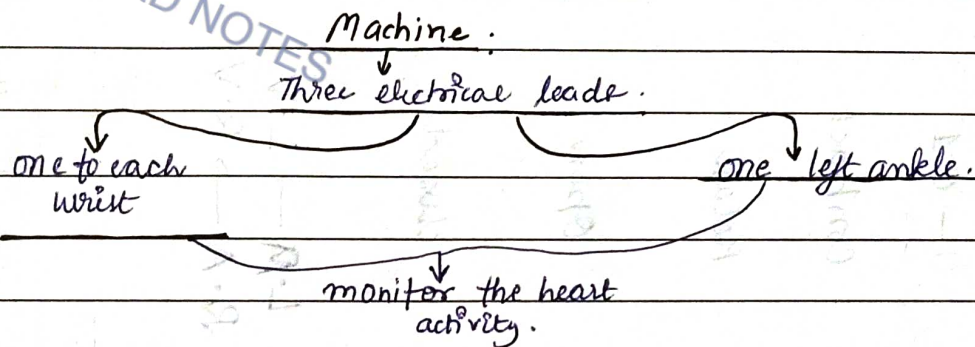 NOTES
Machine :
Three electrical leads.
one to each
wrist
one left ankle.
monitor the heart
activity.